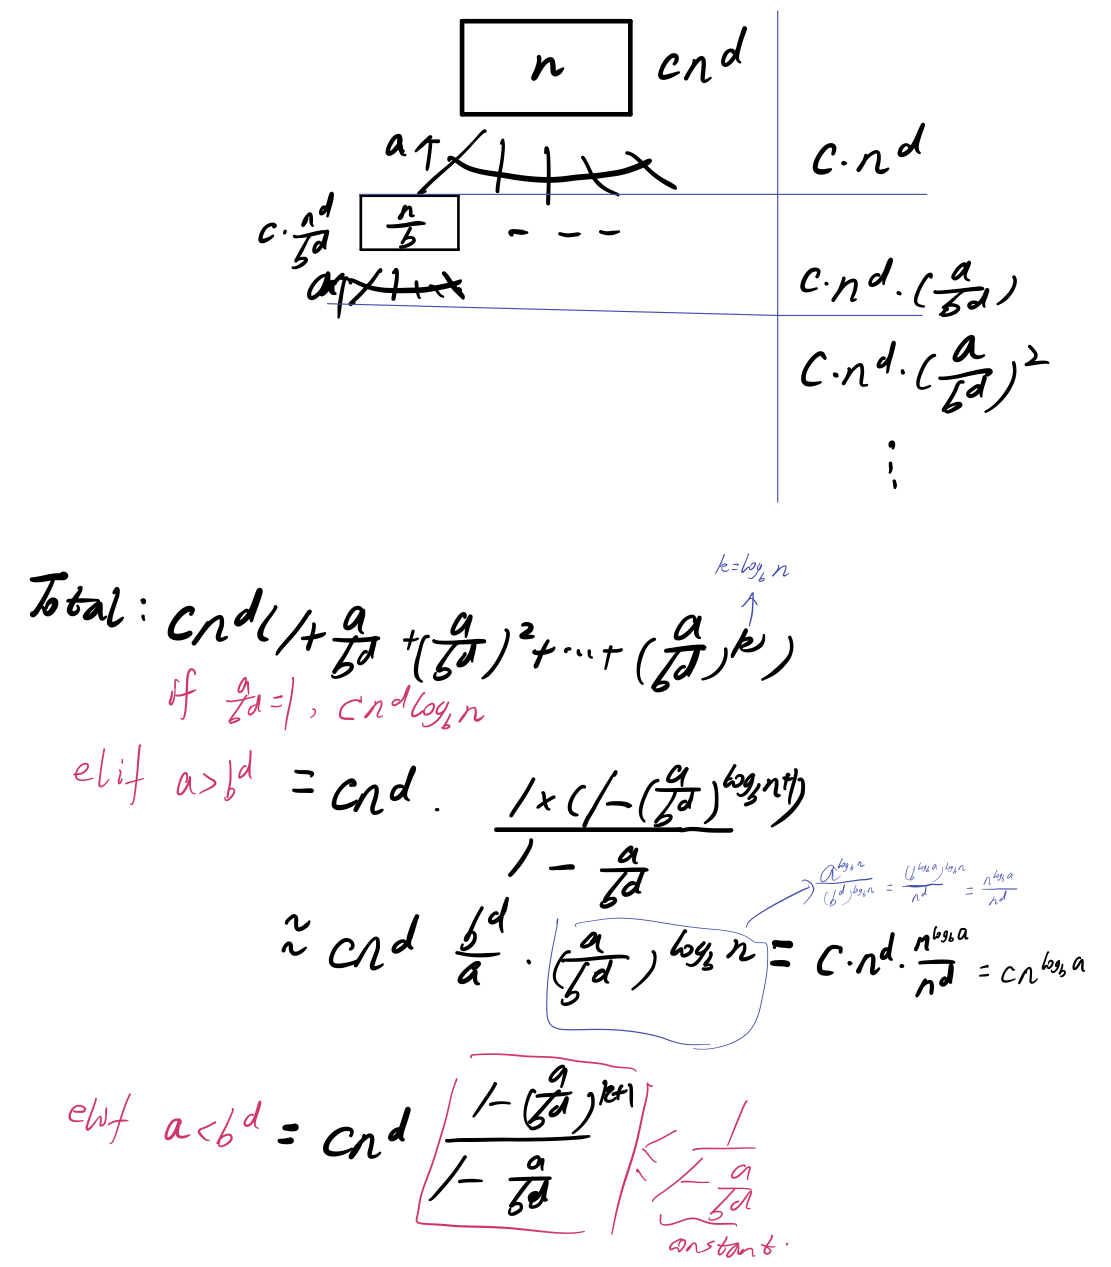 n cn^d
a↑ c·n^d
c·n^d/b^d n/b - - -
a↑ c·n^d·(a/b^d)
c·n^d·(a/b^d)^2
⋮
k=log_b n
Total: cn^d(1+a/b^d+(a/b^d)^2+···+(a/b^d)^k)
if a/b^d=1, cn^d log_b n
elif a>b^d = cn^d · (1×(1-(a/b^d)^(log_b n+1)))/(1-a/b^d)
a^(log_b n)/(b^d)^(log_b n) = (b^(log_b a))^(log_b n)/n^d = n^(log_b a)/n^d
≈ cn^d b^d/a · (a/b^d)^(log_b n) = c·n^d·n^(log_b a)/n^d = cn^(log_b a)
elif a<b^d = cn^d [(1-(a/b^d)^(k+1))/(1-a/b^d)] ≤ 1/(1-a/b^d)
constant.